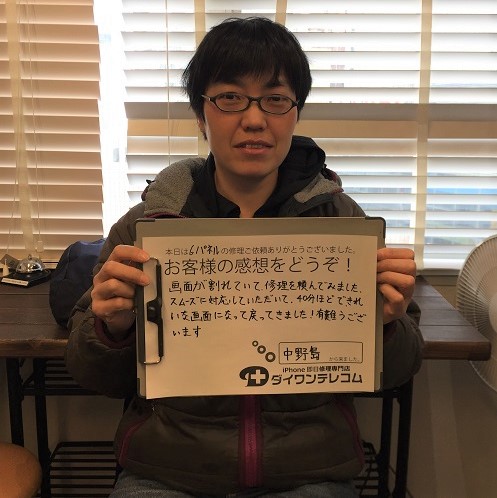 本日は6パネルの修理ご依頼ありがとうございました。
お客様の感想をどうぞ！
画面が割れていて、修理を頼んでみました。
スムーズに対応していただいて、40分ほどできれ
いな画面になって戻ってきました！有難うござ
います
中野島
から来ました。
iPhone 即日修理専門店
ダイワンテレコム